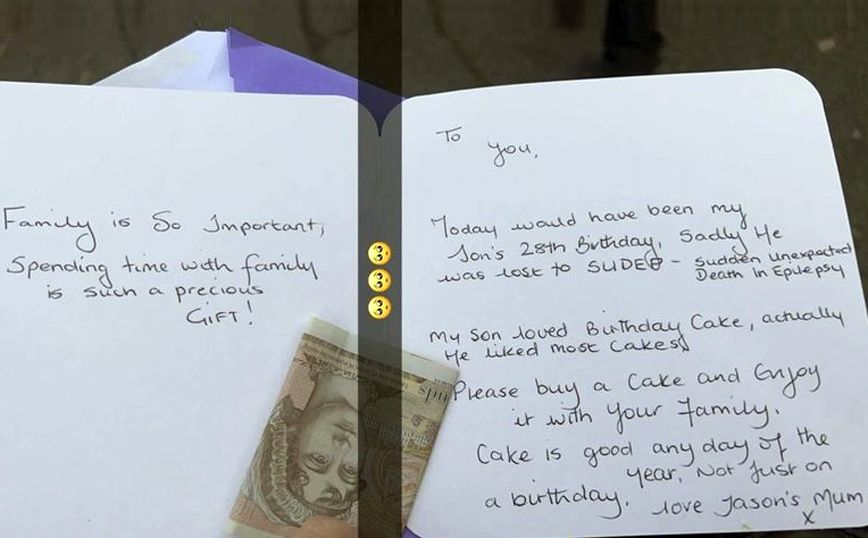 Family is So Important,
Spending time with family
is such a precious
GIFT!
To
you,
Today would have been my
Son's 28th Birthday, Sadly He
was lost to SUDEP - sudden unexpected
Death in Epilepsy
My Son loved Birthday Cake, actually
He liked most Cakes,
Please buy a Cake and Enjoy
it with Your Family.
Cake is good any day of the
year, Not Just on
a birthday. love Jason's Mum
x